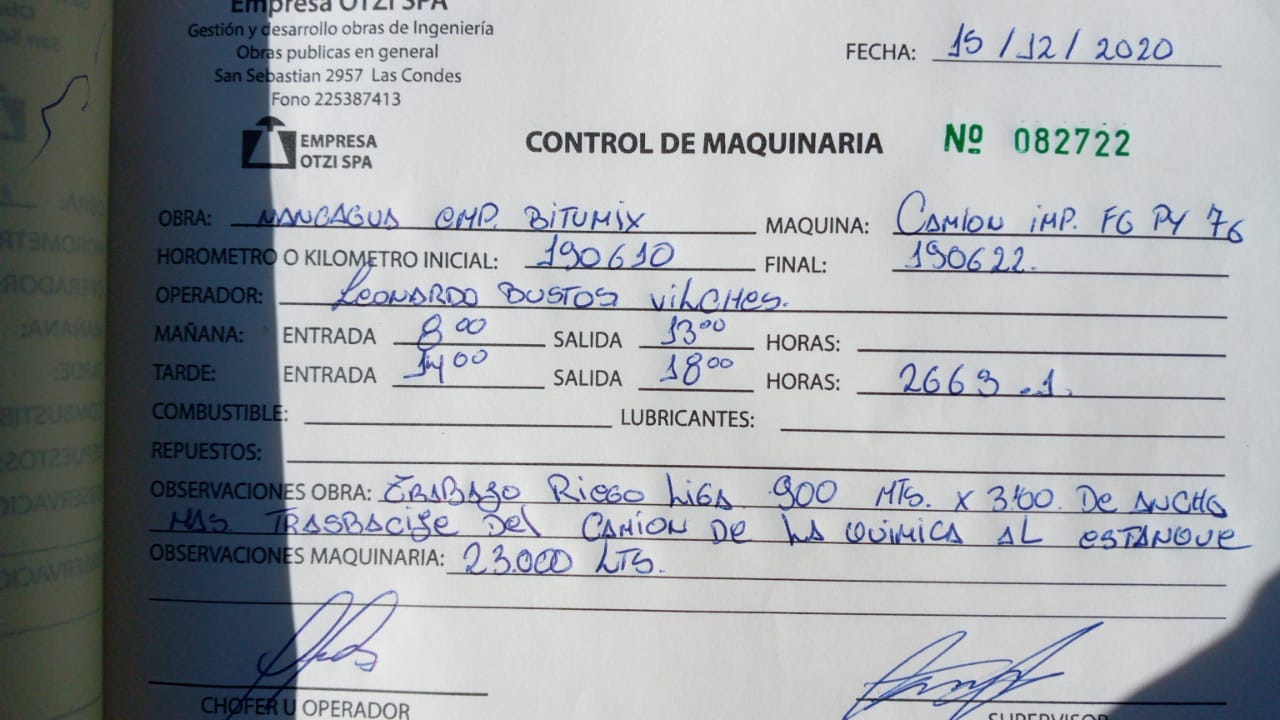 Empresa OTZI SPA
Gestión y desarrollo obras de Ingeniería
Obras publicas en general
San Sebastian 2957 Las Condes
Fono 225387413
FECHA: 15/12/2020
EMPRESA
OTZI SPA
CONTROL DE MAQUINARIA Nº 082722
OBRA: NANCAGUA EMP. BITUMIX MAQUINA: CAMION IMP. FG PY 76
HOROMETRO O KILOMETRO INICIAL: 190610 FINAL: 190622.
OPERADOR: LEONARDO BUSTOS VILCHES.
MAÑANA: ENTRADA 8 00 SALIDA 13 00 HORAS:
TARDE: ENTRADA 14 00 SALIDA 18 00 HORAS: 2663 .1.
COMBUSTIBLE: LUBRICANTES:
REPUESTOS:
OBSERVACIONES OBRA: TRABAJO RIEGO LIGA 900 MTS. X 3.00. DE ANCHO
MAS TRASBACIJE DEL CAMION DE LA QUIMICA AL ESTANQUE
OBSERVACIONES MAQUINARIA: 23.000 LTS.
CHOFER U OPERADOR SUPERVISOR